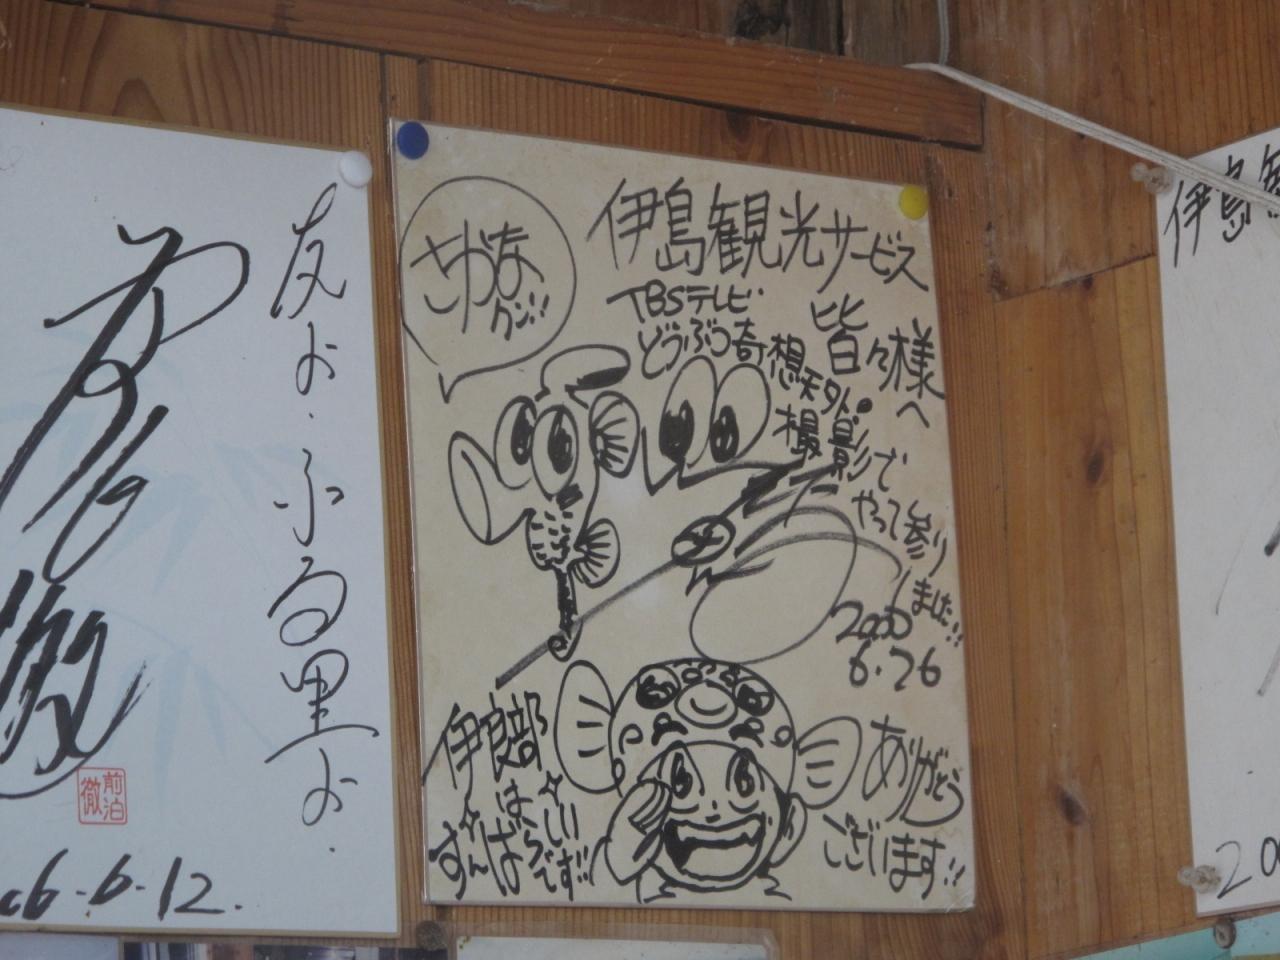 友よ、ふる里よ、
前泊
徹
6-6-12.
さかな
クン!!
伊島観光サービス
皆々様
へ
TBSテレビ
どうぶつ奇想天外。
撮影で
やって参り
ました!!
2000
6.26
伊良部
は
すんばらしい
です!!
ありがとう
ございます!!
伊島
200